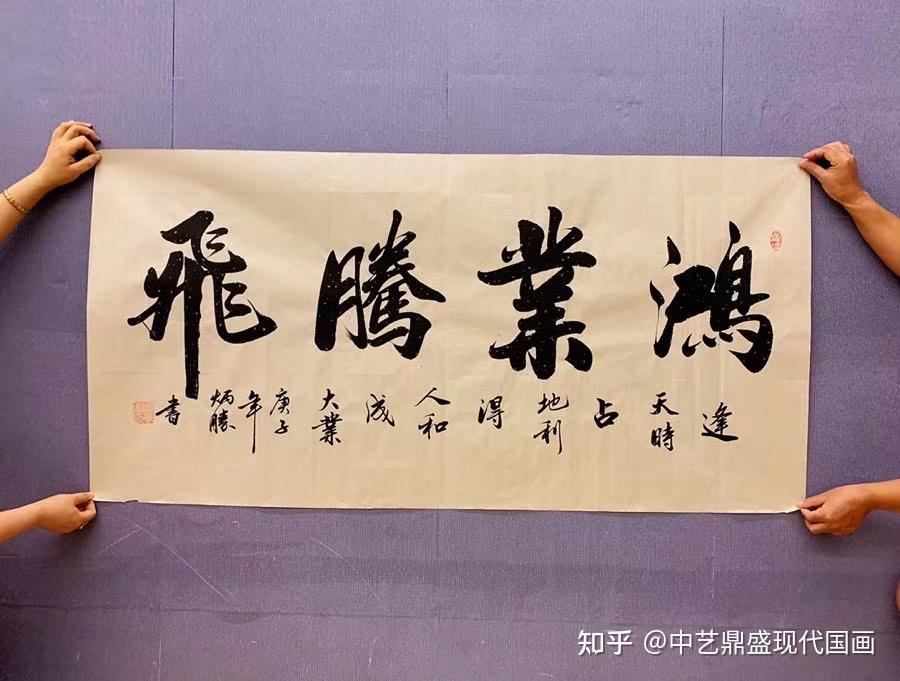 鴻業騰飛
逢天時占地利得人和成大業
庚子年炳勝書
知乎 @中艺鼎盛现代国画